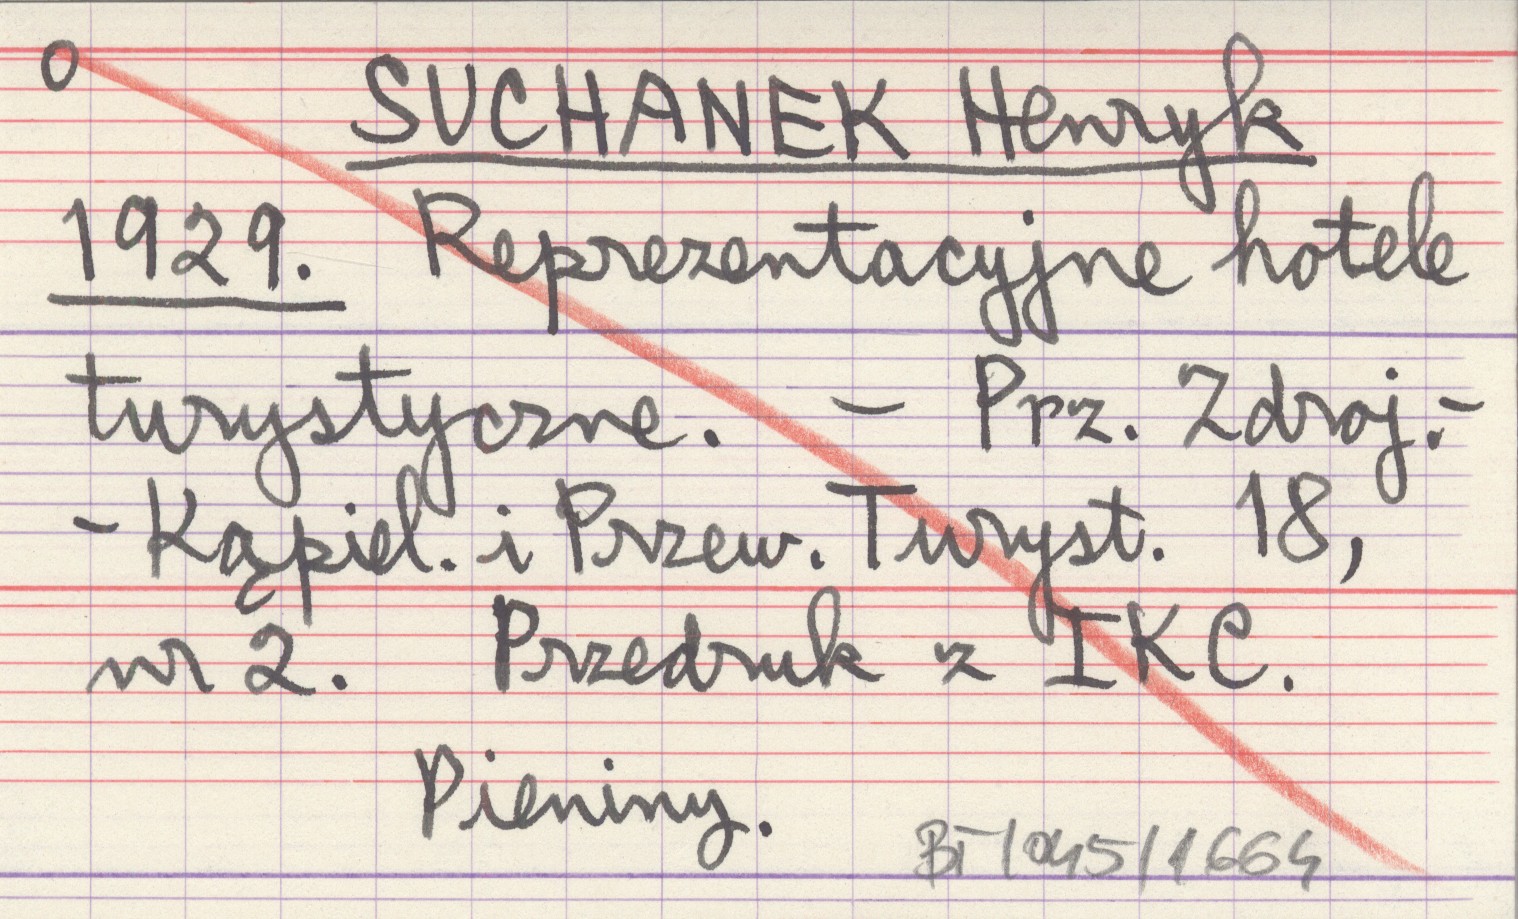 O SUCHANEK Henryk
1929. Reprezentacyjne hotele
turystyczne. – Prz. Zdroj.-
- Kąpiel. i Przew. Turyst. 18,
nr 2. Przedruk z IKC.
Pieniny.
BT/045/1664